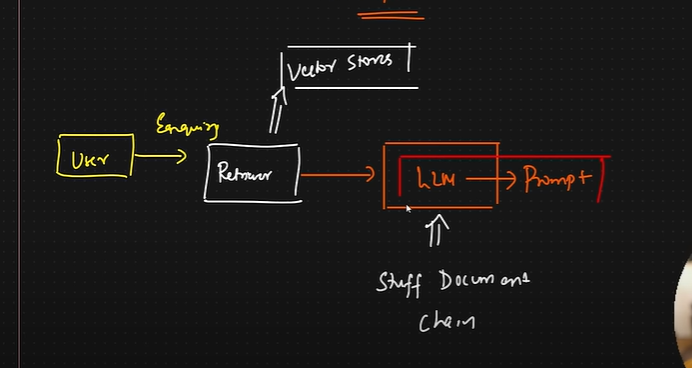 Vector Stores
Enquiry
User
Retriever
LLM
Prompt
Stuff Document
Chain